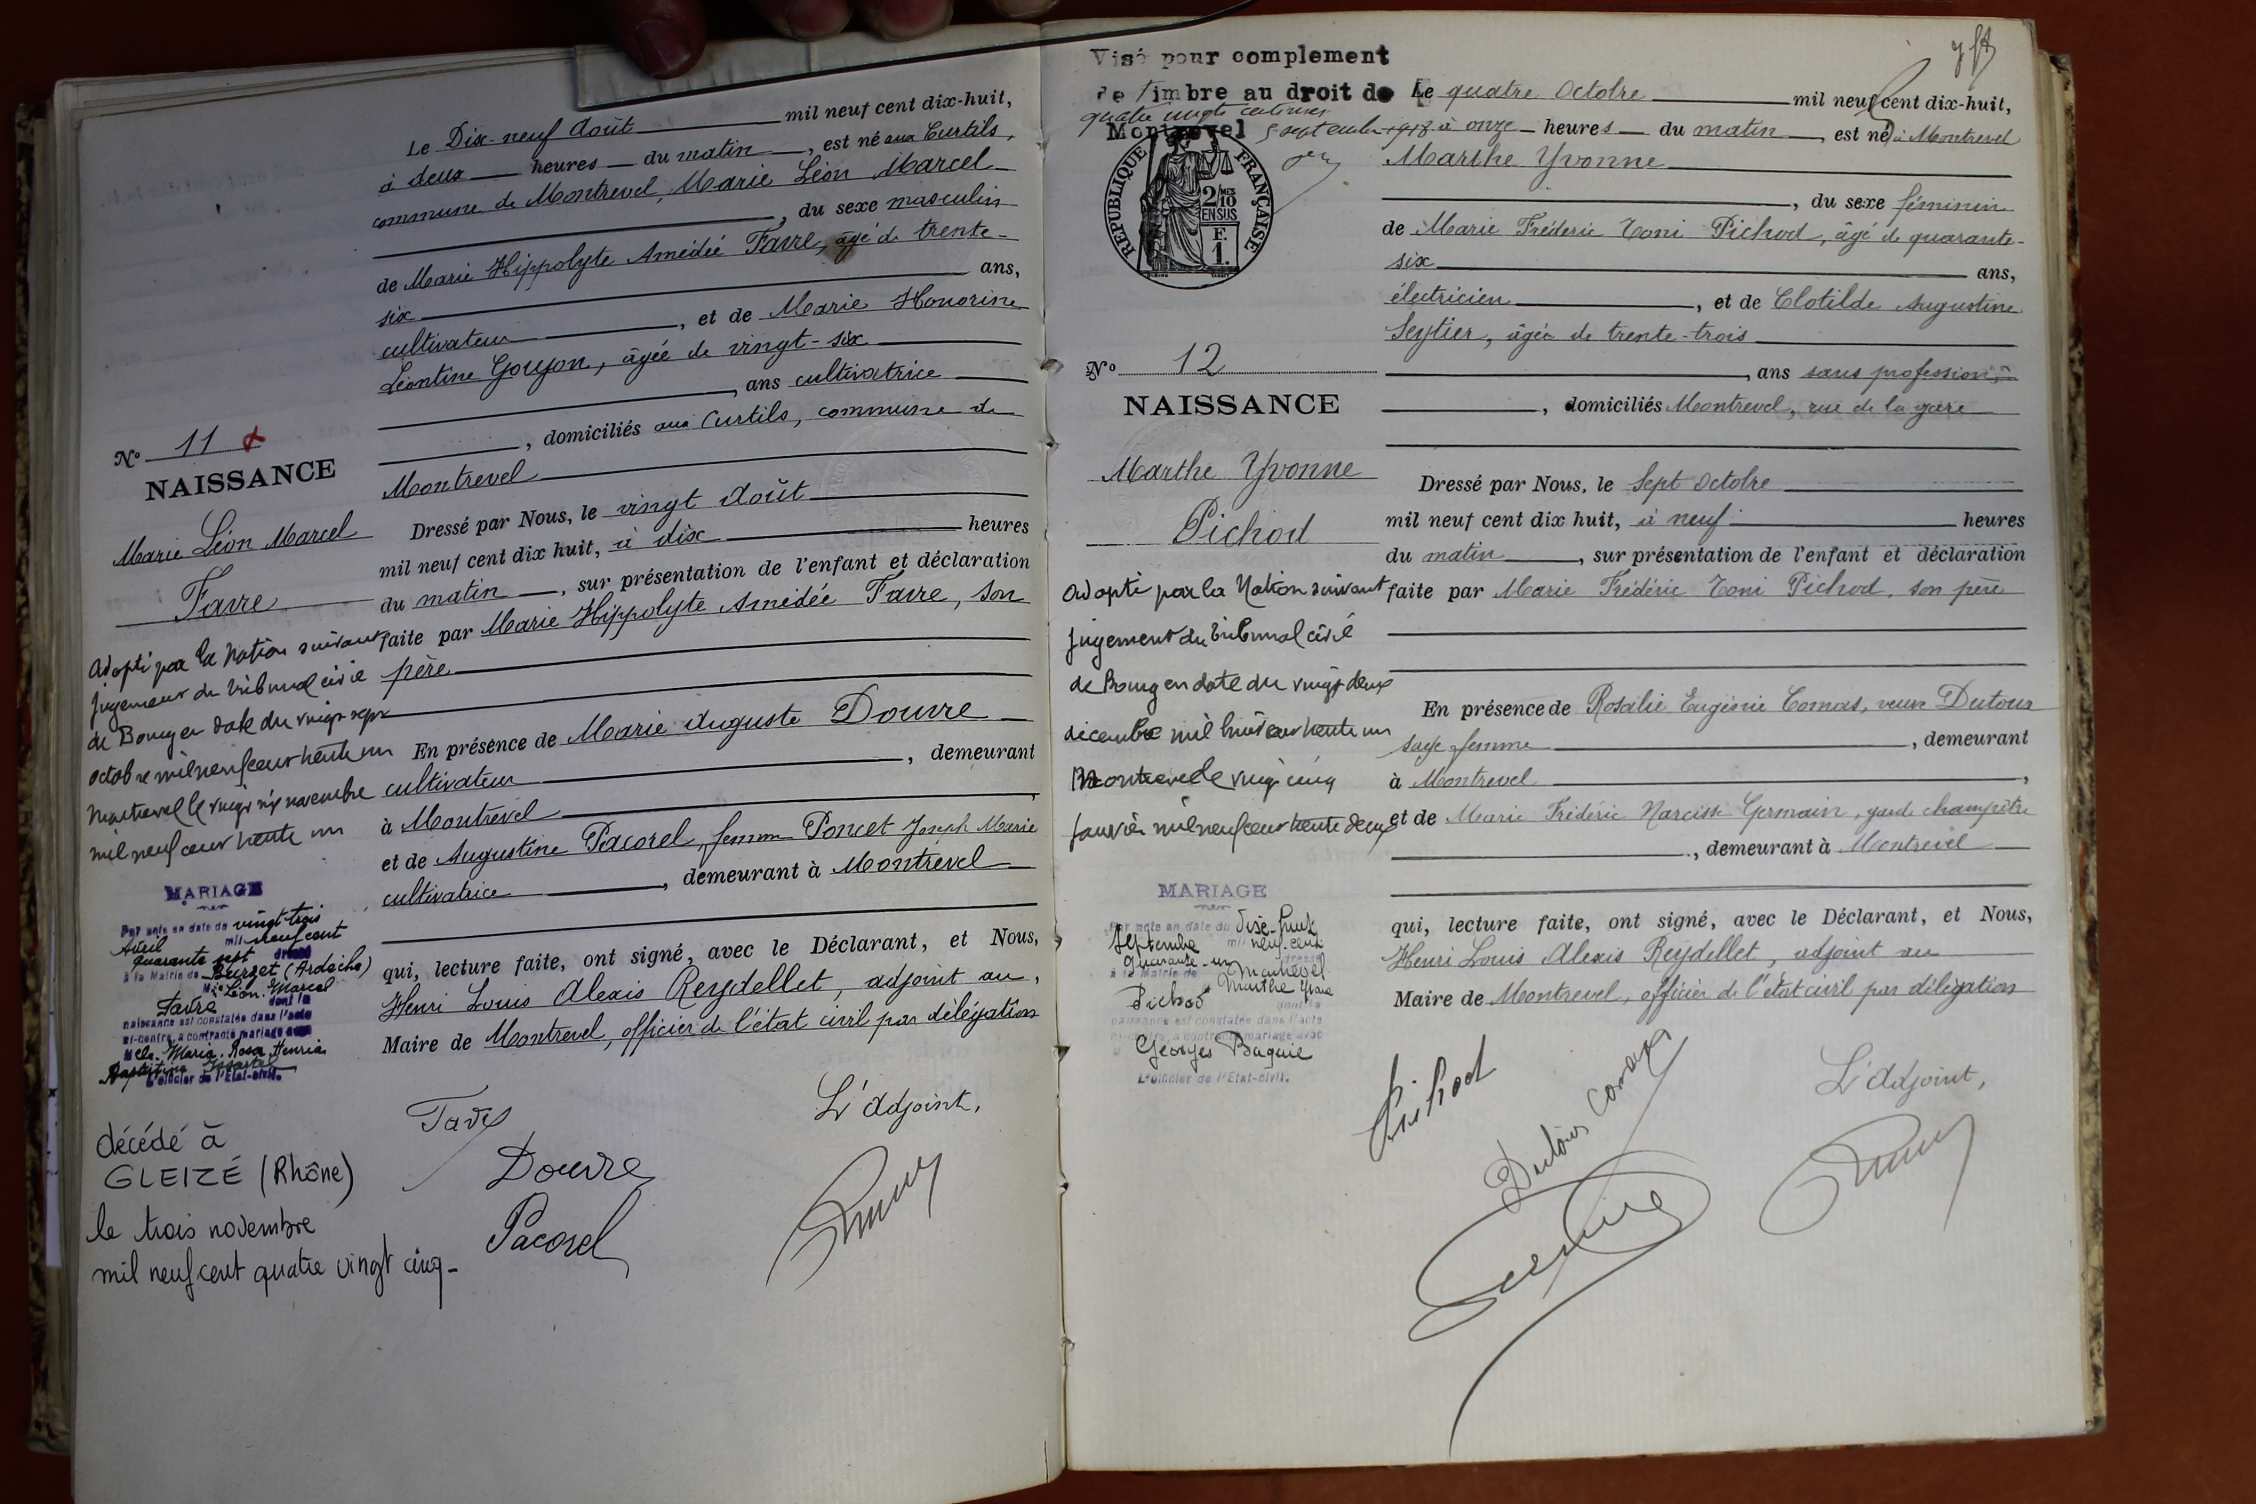 Le Dix-neuf Août mil neuf cent dix-huit,
à deux heures du matin, est né aux Curtils,
commune de Montrevel, Marie Léon Marcel
, du sexe masculin
de Marie Hippolyte Amédée Favre, âgé de trente-
six ans,
cultivateur, et de Marie Honorine
Léontine Goujon, âgée de vingt-six
, ans cultivatrice
, domiciliés aux Curtils, commune de
Montrevel
No 11
NAISSANCE
Marie Léon Marcel
Favre
Dressé par Nous, le vingt Août
mil neuf cent dix huit, à dix heures
du matin, sur présentation de l'enfant et déclaration
faite par Marie Hippolyte Amédée Favre, son
père
En présence de Marie Auguste Douvre
cultivateur, demeurant
à Montrevel,
et de Augustine Pacorel, femme Poncet Joseph Marie
cultivatrice, demeurant à Montrevel
qui, lecture faite, ont signé, avec le Déclarant, et Nous,
Henri Louis Alexis Reydellet, adjoint au,
Maire de Montrevel, officier de l'état civil par délégation
Adopté par la Nation suivant
jugement du tribunal civil
de Bourg en date du vingt sept
octobre mil neuf cent trente un
Montrevel le vingt six novembre
mil neuf cent trente un
MARIAGE
Par acte en date du vingt-trois
Avril mil neuf cent
quarante sept dressé
à la Mairie de Burzet (Ardèche)
Mrie Léon Marcel
Favre dont la
naissance est constatée dans l'acte
ci-contre, a contracté mariage avec
Melle Maria Rosa Henria
L'officier de l'Etat-civil.
décédé à
GLEIZÉ (Rhône)
le trois novembre
mil neuf cent quatre vingt cinq-
Favre
L'Adjoint,
Douvre
Pacorel
Visé pour complement
de Timbre au droit de
quatre vingts centimes
Montrevel 5 septembre 1918
RÉPUBLIQUE FRANÇAISE
2/10 MES
EN SUS
F.
1.
Le quatre Octobre mil neuf cent dix-huit,
à onze heures du matin, est née à Montrevel
Marthe Yvonne
, du sexe féminin
de Marie Fréderic Toni Pichod, âgé de quarante-
six ans,
électricien, et de Clotilde Augustine
Seytier, âgée de trente-trois
, ans sans profession,
, domiciliés Montrevel, rue de la gare
No 12
NAISSANCE
Marthe Yvonne
Pichod
Dressé par Nous, le Sept Octobre
mil neuf cent dix huit, à neuf heures
du matin, sur présentation de l'enfant et déclaration
faite par Marie Frédéric Toni Pichod, son père
En présence de Rosalie Eugénie Comas, veuve Dutour
sage femme, demeurant
à Montrevel,
et de Marie Frédéric Narcisse Germain, garde champêtre
, demeurant à Montrevel
qui, lecture faite, ont signé, avec le Déclarant, et Nous,
Henri Louis Alexis Reydellet, adjoint au
Maire de Montrevel, officier de l'état civil par délégation
Adopté par la Nation suivant
jugement du tribunal civil
de Bourg en date du vingt deux
décembre mil neuf cent trente un
Montrevel le vingt cinq
janvier mil neuf cent trente deux
MARIAGE
Par acte en date du Dix-huit
Septembre mil neuf cent
quarante-un dressé
à la Mairie de Montrevel
Pichod Marthe Yvone
dont la
naissance est constatée dans l'acte
ci-contre, a contracté mariage avec
Georges Baguie
L'officier de l'Etat-civil.
Pichod
Dutour Comas
L'Adjoint,